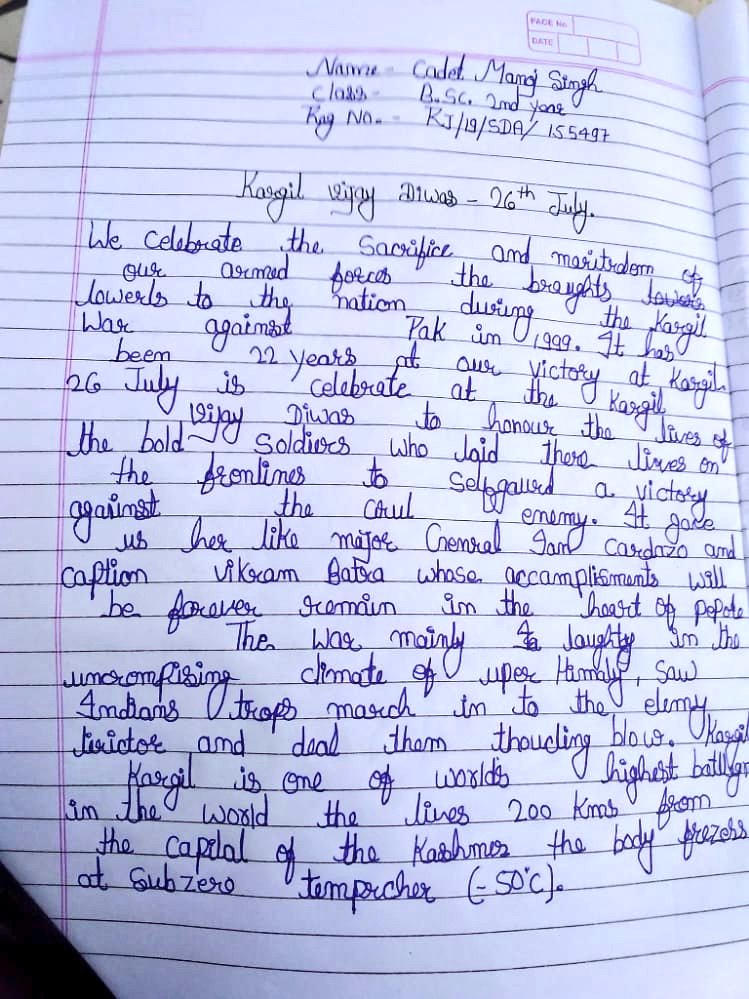 PAGE No
DATE
Name - Cadet Manoj Singh
Class - B.Sc. 2nd year
Rag No. - RJ/19/SDA/155497
Kargil vijay Diwas - 26th July.
We celebrate the Sacrifice and maritrdom of
our armed forces the braughts
lowerls to the nation during the Kargil
War against Pak in 1999. It has
been 22 years at our victory at Kargil.
26 July is celebrate at the Kargil
vijay Diwas to honour the lives of
the bold Soldiers who laid there lives on
the frontlines to selfgaurd a victory
against the crul enemy. It gave
us her like major Genral Ian Cardozo and
caption vikram Batra whose accamplisments will
be forever remain in the heart of pepole
The War mainly laughty in the
uncrompising climate of uper Himaly, Saw
Indians trops march in to the elemy
and deal them thoucling blow. Kargil
Kargil is one of worlds highest
in the world the lives 200 Kms from
the capital of the Kashmer the body frezers
at Subzero temprcher (-50°C).